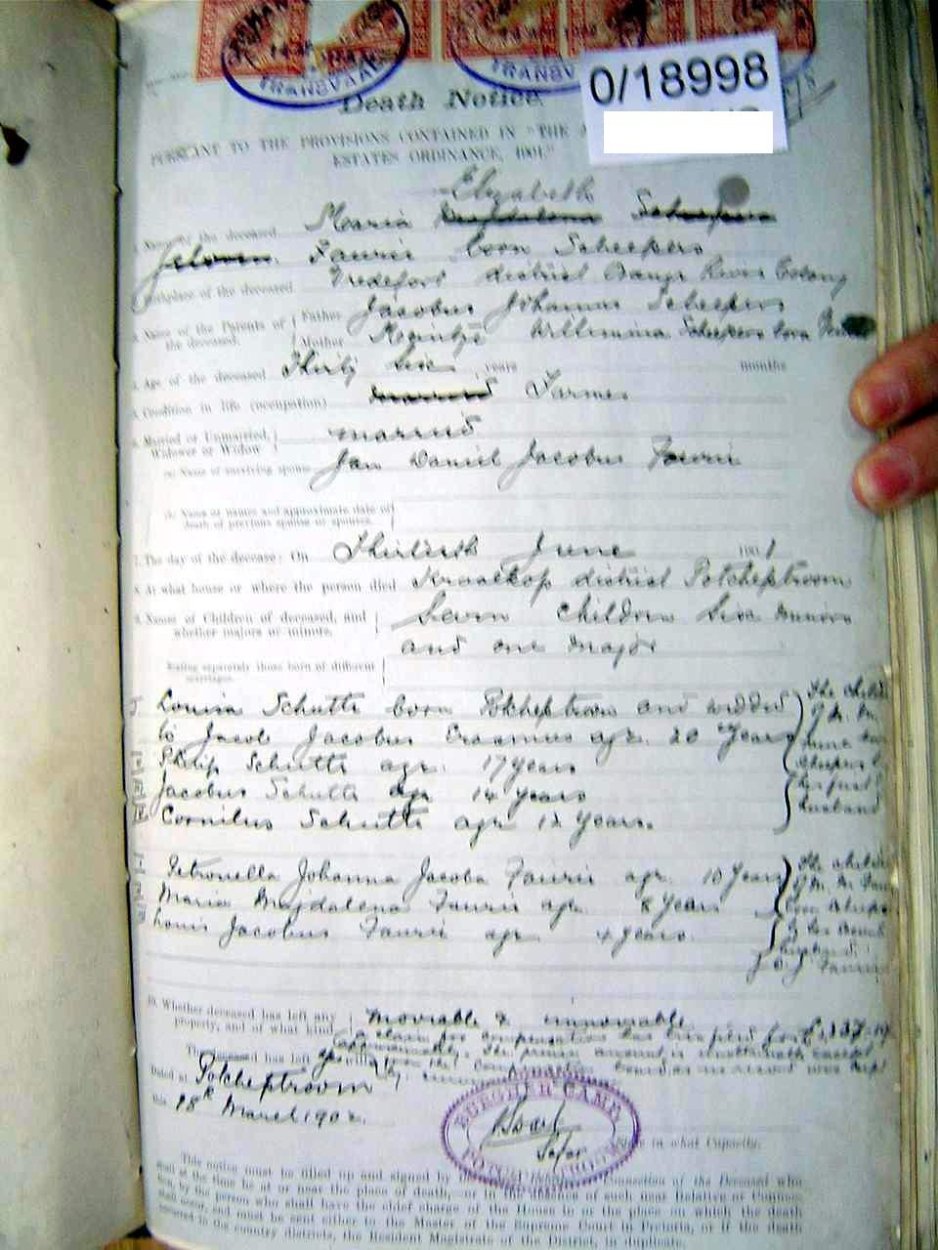 TRANSVAAL
TRANSVAAL
0/18998
Death Notice
PURSUANT TO THE PROVISIONS CONTAINED IN "THE
ESTATES ORDINANCE, 1901."
Elizabeth
1. Name of the deceased Maria
Fourie born Scheepers
Birthplace of the deceased Vredefort district Orange River Colony
3. Name of the Parents of the deceased. Father Jacobus Johannes Scheepers
Mother Willemina Scheepers born
4. Age of the deceased Thirty Six years months
5. Condition in life (occupation) married Farmer
6. Married or Unmarried, Widower or Widow married
(a) Name of surviving spouse Jan Daniel Jacobus Fourie
(b) Name or names and approximate date of death of previous spouse or spouses.
7. The day of the decease: On Thirtieth June 1901
8. At what house or where the person died Kraalkop district Potchefstroom
9. Names of Children of deceased, and whether majors or minors. Seven children Six minors
and one major
Stating separately those born of different marriages.
I Louisa Schutte born Potchefstroom and wedded
to Jacob Jacobus Erasmus age 20 Years
II Philip Schutte age 17 years
III Jacobus Schutte age 14 years
IV Cornilus Schutte age 12 Years.
her first
husband
I Petronella Johanna Jacoba Fourie age 10 Years
II Maria Magdalena Fourie age 8 Years
III Louis Jacobus Fourie age 4 years.
husband
J. D. J. Fourie
10. Whether deceased has left any property, and of what kind movable & immovable
a claim for compensation has been filed for
The deceased has left
Dated at Potchefstroom
this 18th March 1902.
BURGHER CAMP
POTCHEFSTROOM
State in what Capacity.
This notice must be filled up and signed by the nearest Relative or Connection of the Deceased who
shall at the time be at or near the place of death, or in the absence of such near Relative or Connec-
tion, by the person who shall have the chief charge of the House in or the place on which the death
shall occur, and must be sent either to the Master of the Supreme Court in Pretoria, or if the death
occurred in the country districts, the Resident Magistrate of the District, in duplicate.